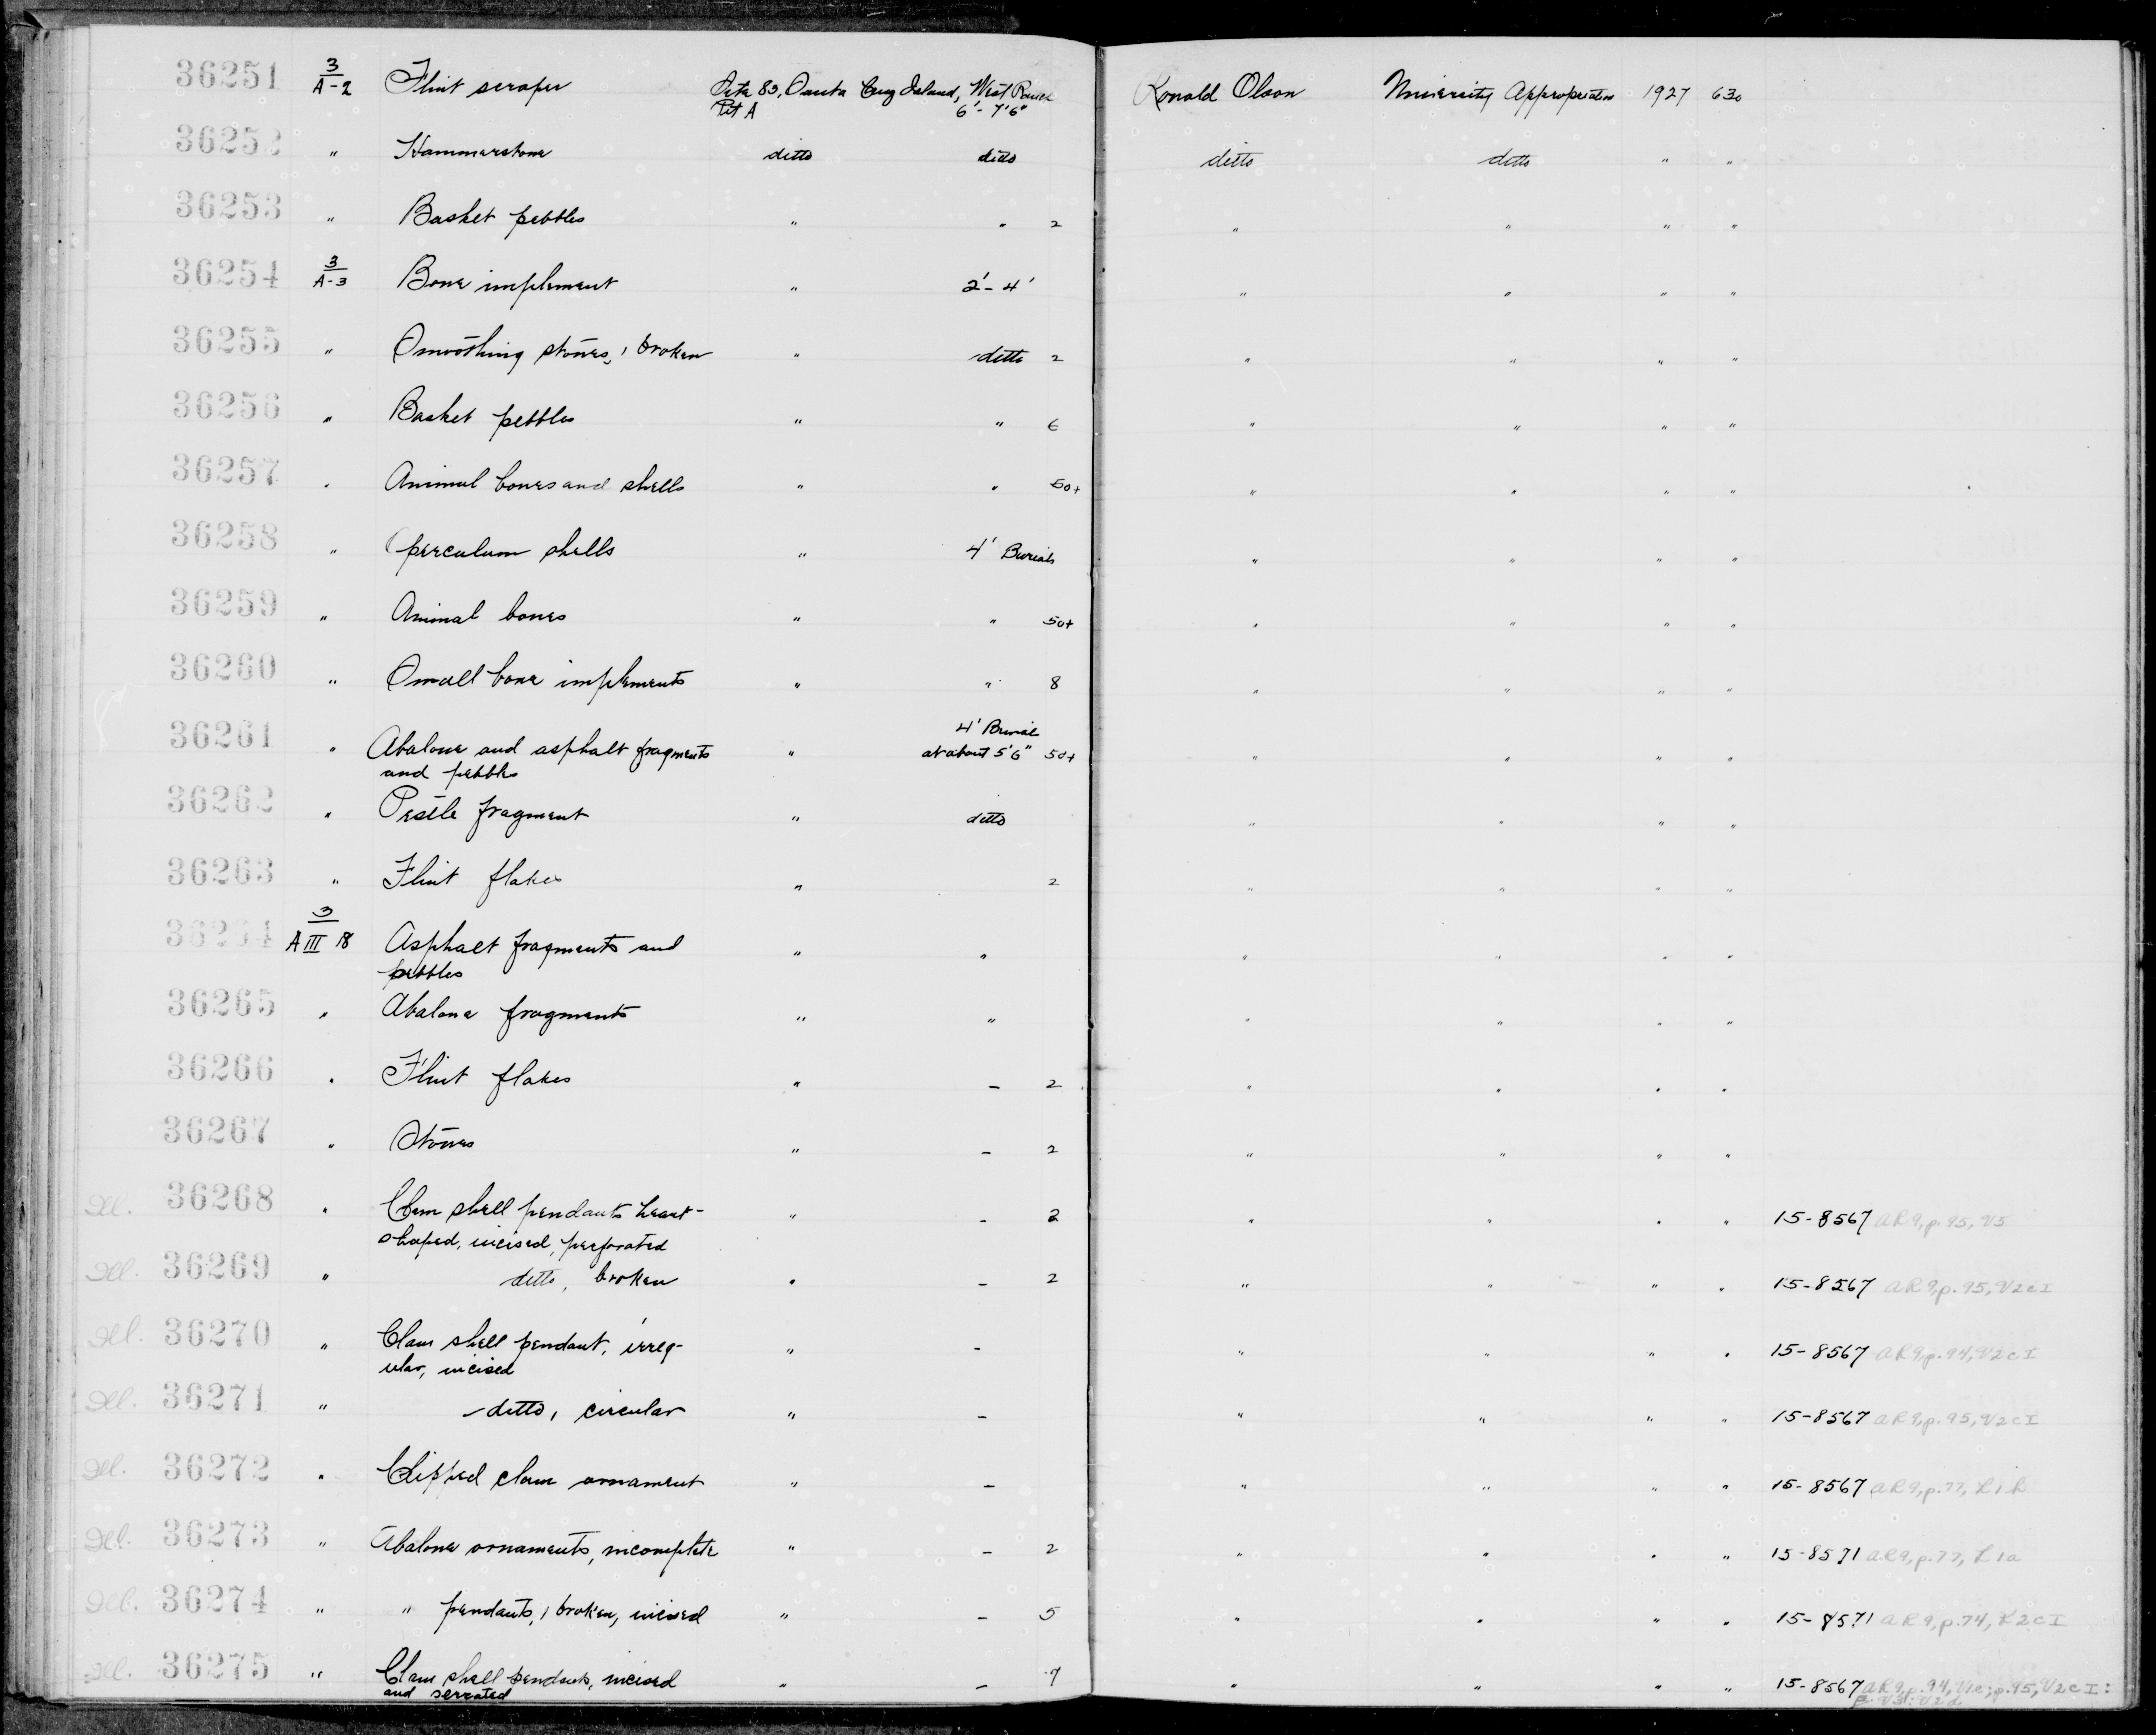 36251 3/A-2 Flint scraper Site 83, Santa Cruz Island, West Ronald Olson University Appropriation 1927 630
Pit A 6'-7'6"
36252 " Hammerstone ditto ditto ditto ditto " "
36253 " Basket pebbles " " 2 " " " "
36254 3/A-3 Bone implement " 2'-4' " " " "
36255 " Smoothing stones, 1 broken " ditto 2 " " " "
36256 " Basket pebbles " " 6 " " " "
36257 " Animal bones and shells " " 50+ " " " "
36258 " Operculum shells " 4' Burials " " " "
36259 " Animal bones " " 50+ " " " "
36260 " Small bone implements " " 8 " " " "
4' Burial
36261 " Abalone and asphalt fragments " at about 5'6" 50+ " " " "
and pebbles
36262 " Pestle fragment " ditto " " " "
36263 " Flint flakes " 2 " " " "
36264 3/A III 18 Asphalt fragments and " " " " " "
pebbles
36265 " Abalone fragments " " " " " "
36266 " Flint flakes " - 2 " " " "
36267 " Stones " - 2 " " " "
Ill. 36268 " Clam shell pendants heart- " - 2 " " " " 15-8567 AR9, p.95, V5
shaped, incised, perforated
Ill. 36269 " ditto, broken " - 2 " " " " 15-8567 AR9, p.95, V2cI
Ill. 36270 " Clam shell pendant, irreg- " - " " " " 15-8567 AR9, p.94, V2cI
ular, incised
Ill. 36271 " ditto, circular " - " " " " 15-8567 AR9, p.95, V2cI
Ill. 36272 " Chipped clam ornament " - " " " " 15-8567 AR9, p.77,
Ill. 36273 " Abalone ornaments, incomplete " - 2 " " " " 15-8571 AR9, p.77,
Ill. 36274 " " pendants, 1 broken, incised " - 5 " " " " 15-8571 AR9, p.74,
Ill. 36275 " Clam shell pendants, incised " - 7 " " " " 15-8567 AR9, p.94, p.95, V2cI:
and serrated